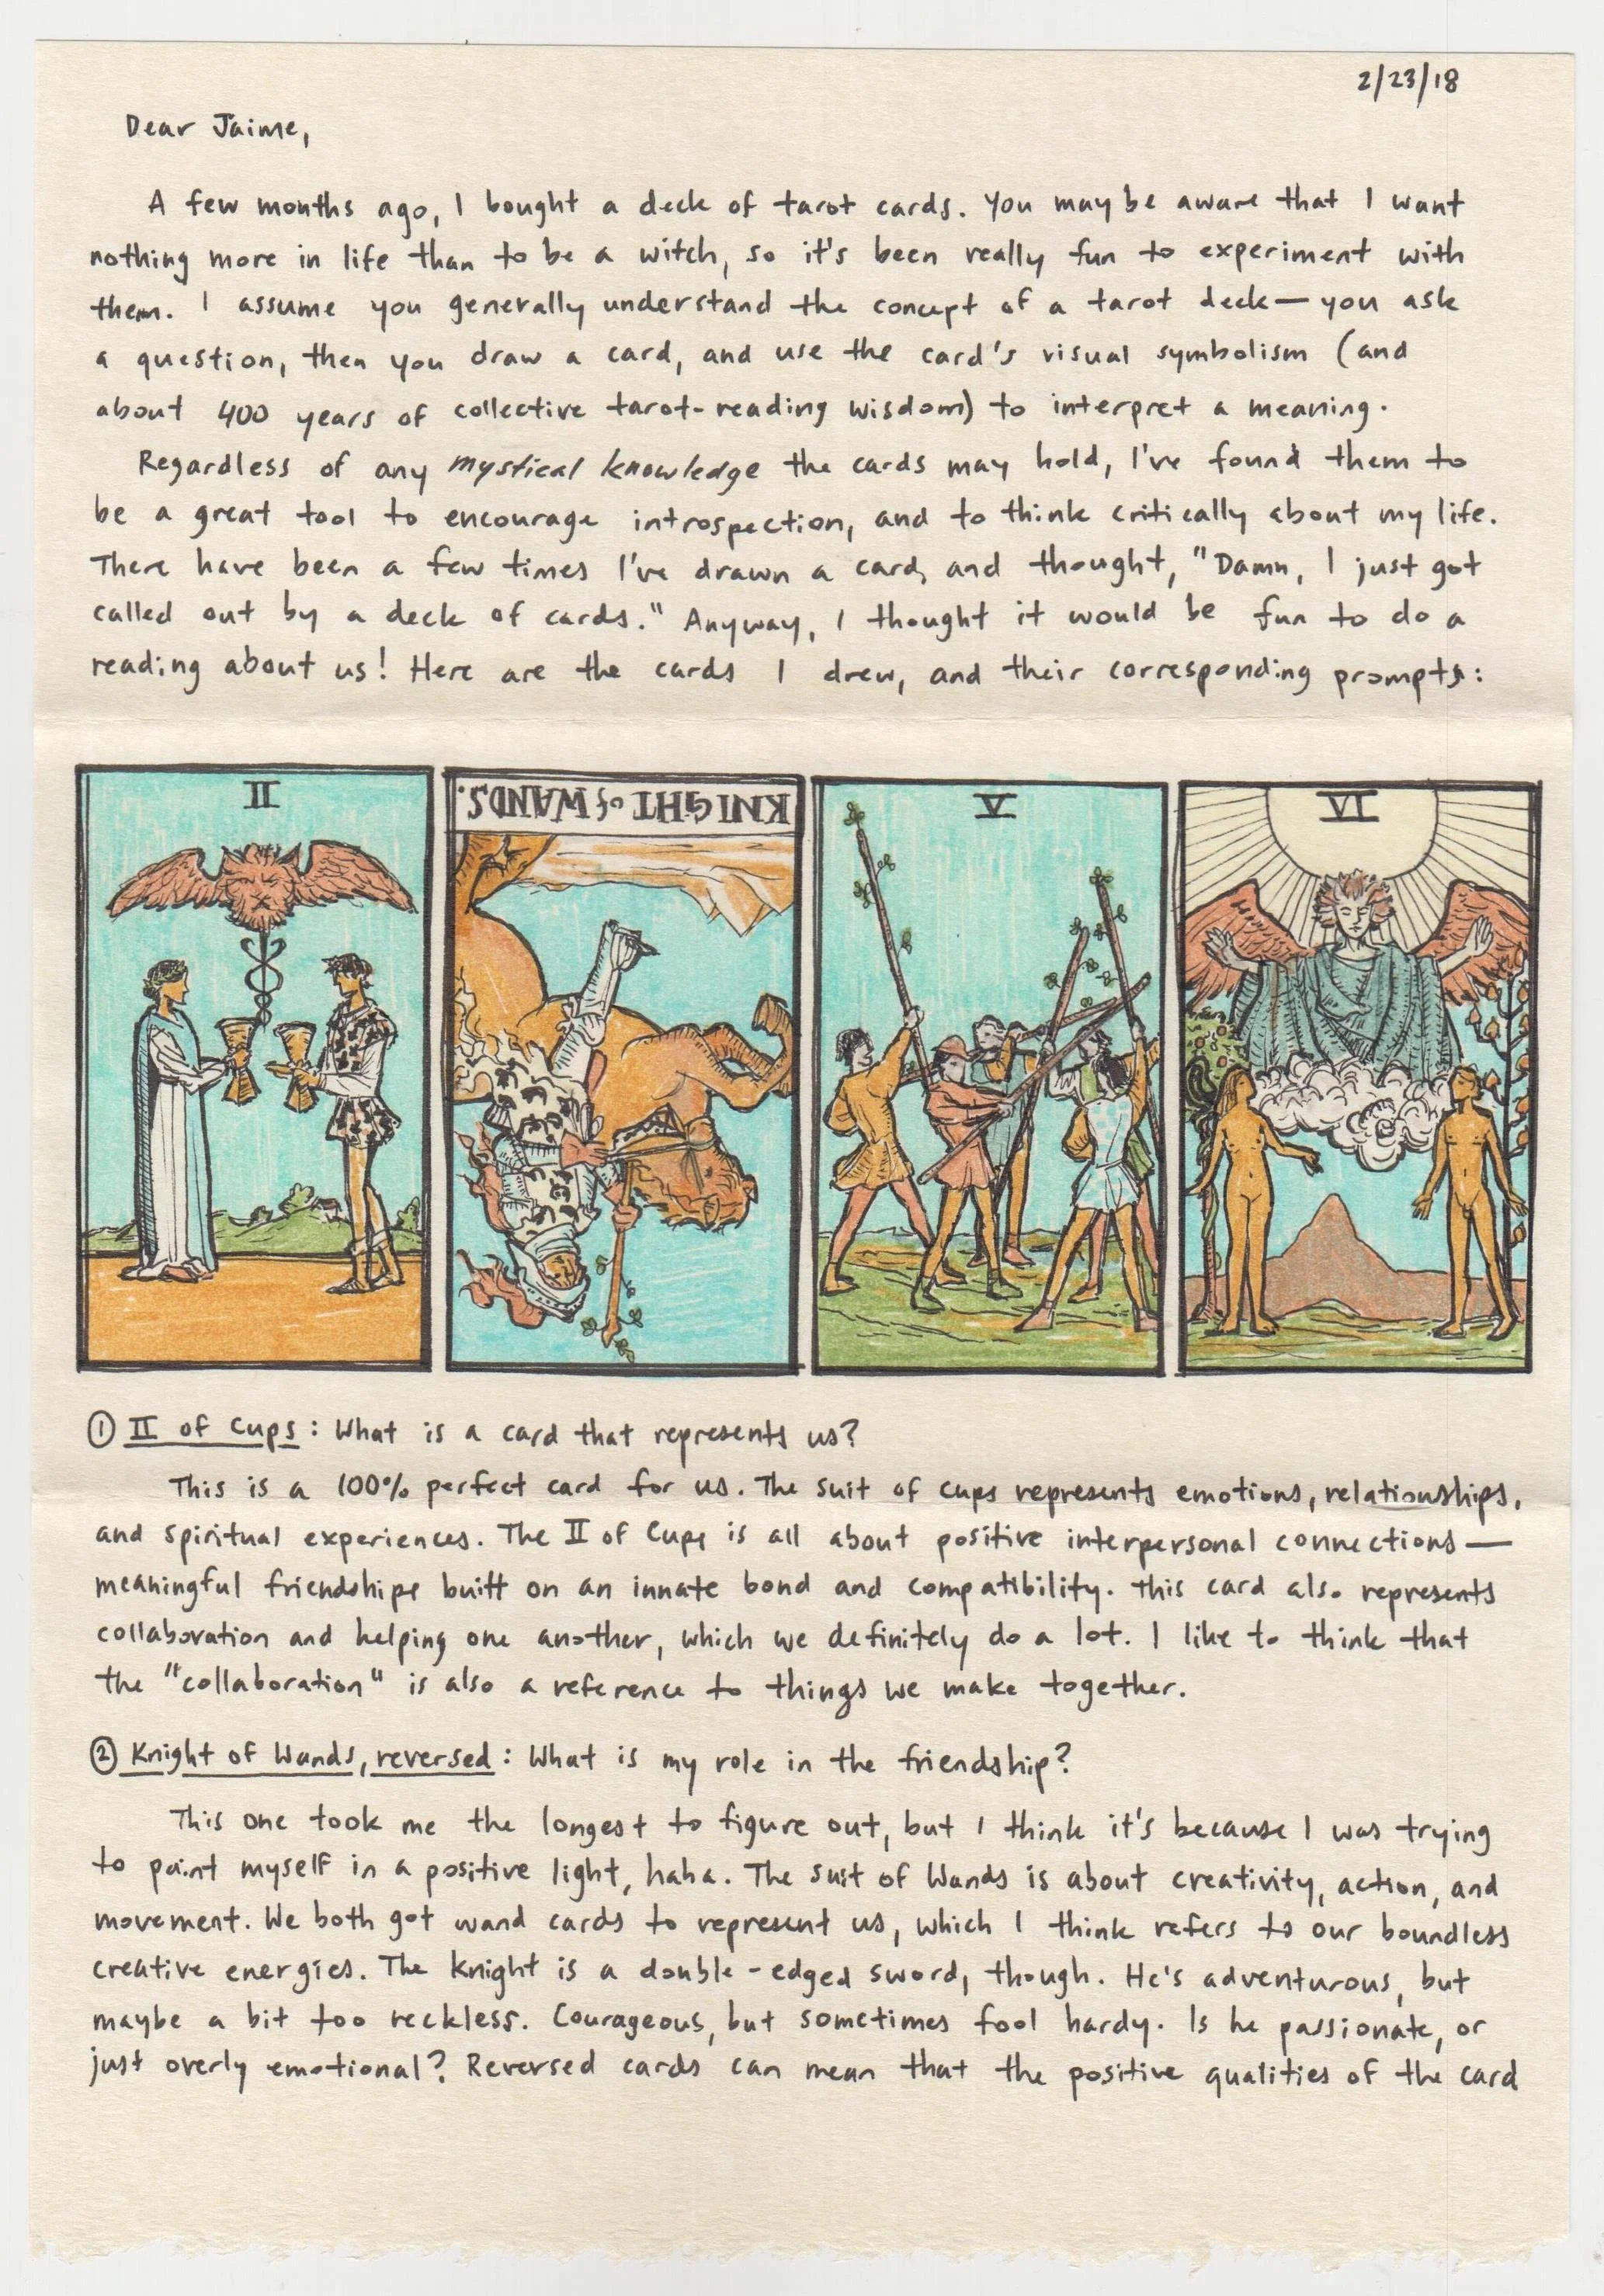 2/23/18
Dear Jaime,
A few months ago, I bought a deck of tarot cards. You may be aware that I want
nothing more in life than to be a witch, so it's been really fun to experiment with
them. I assume you generally understand the concept of a tarot deck— you ask
a question, then you draw a card, and use the card's visual symbolism (and
about 400 years of collective tarot-reading wisdom) to interpret a meaning.
Regardless of any mystical knowledge the cards may hold, I've found them to
be a great tool to encourage introspection, and to think critically about my life.
There have been a few times I've drawn a card, and thought, "Damn, I just got
called out by a deck of cards." Anyway, I thought it would be fun to do a
reading about us! Here are the cards I drew, and their corresponding prompts:
II
KNIGHT of WANDS.
V
VI
① II of Cups: What is a card that represents us?
This is a 100% perfect card for us. The suit of cups represents emotions, relationships,
and spiritual experiences. The II of Cups is all about positive interpersonal connections—
meaningful friendships built on an innate bond and compatibility. This card also represents
collaboration and helping one another, which we definitely do a lot. I like to think that
the "collaboration" is also a reference to things we make together.
② Knight of Wands, reversed: What is my role in the friendship?
This one took me the longest to figure out, but I think it's because I was trying
to paint myself in a positive light, haha. The suit of Wands is about creativity, action, and
movement. We both got wand cards to represent us, which I think refers to our boundless
creative energies. The Knight is a double-edged sword, though. He's adventurous, but
maybe a bit too reckless. Courageous, but sometimes fool hardy. Is he passionate, or
just overly emotional? Reversed cards can mean that the positive qualities of the card